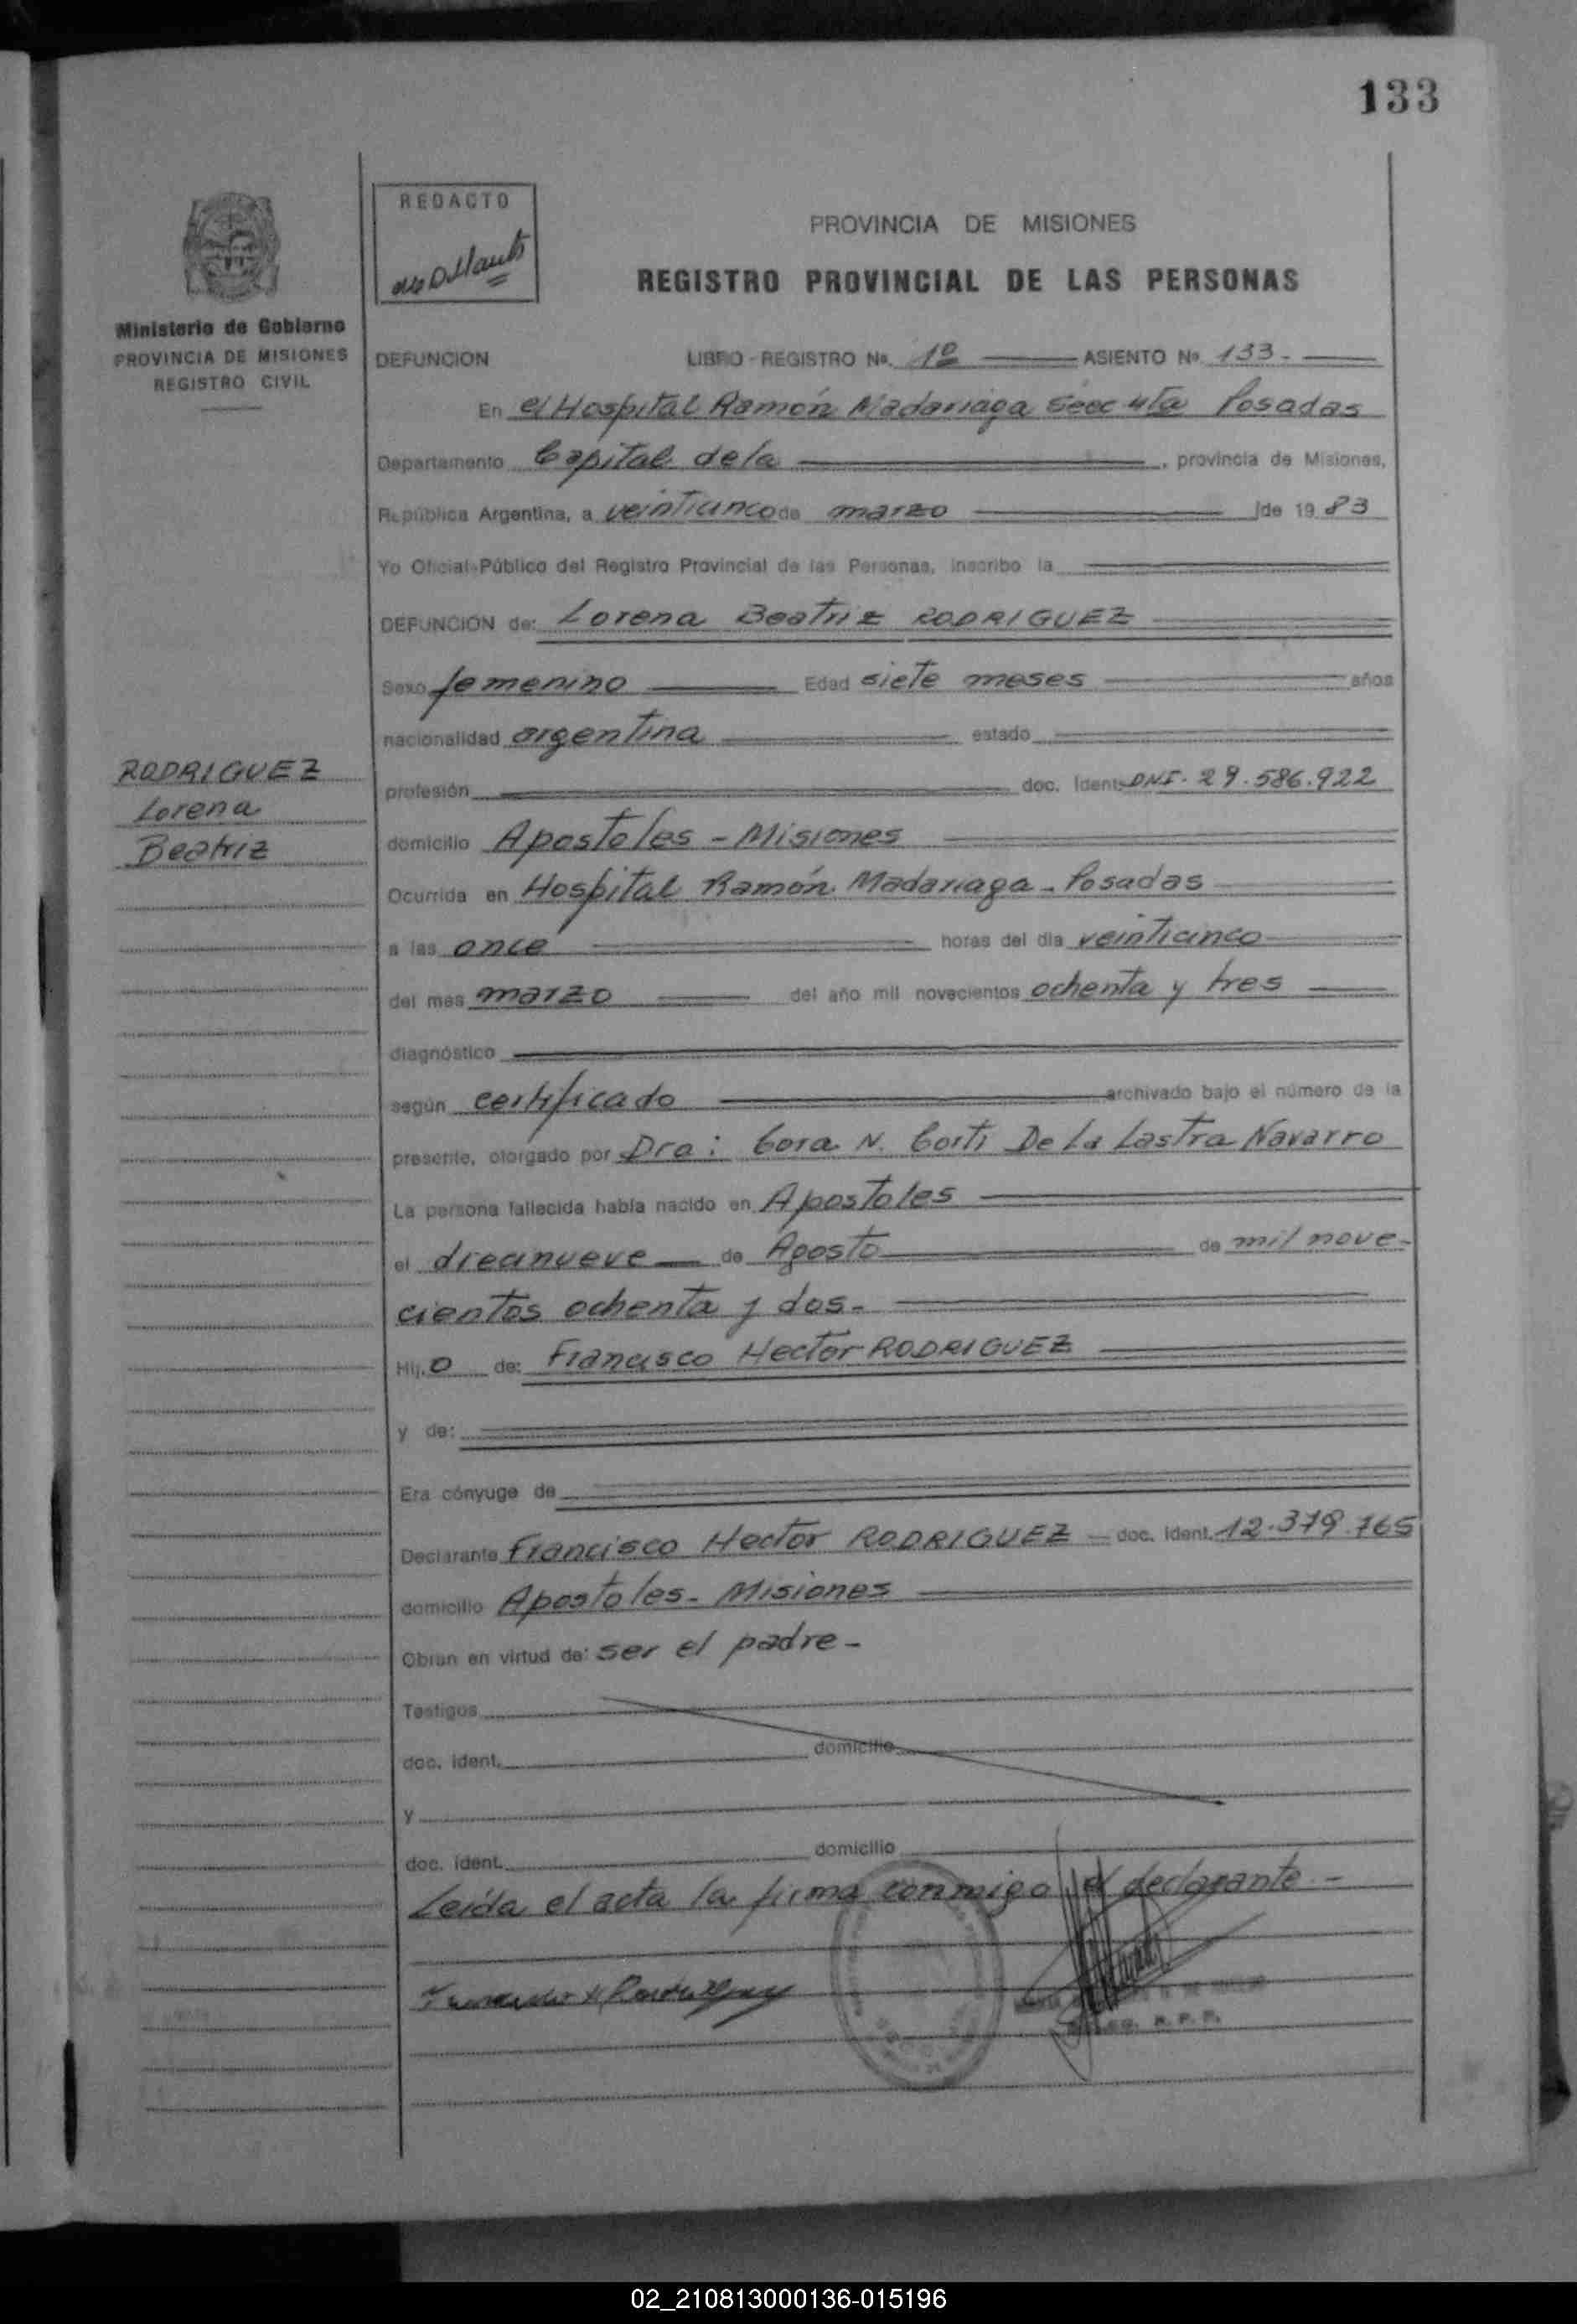 133
REDACTO
PROVINCIA DE MISIONES
REGISTRO PROVINCIAL DE LAS PERSONAS
Ministerio de Gobierno
PROVINCIA DE MISIONES
REGISTRO CIVIL
DEFUNCION LIBRO - REGISTRO Nº. 1º ASIENTO Nº 133.-
En el Hospital Ramón Madariaga Secc 4ta Posadas
Departamento Capital de la, provincia de Misiones,
República Argentina, a veinticinco de marzo de 1983
Yo Oficial Público del Registro Provincial de las Personas, inscribo la
DEFUNCION de: Lorena Beatriz RODRIGUEZ
Sexo femenino Edad siete meses años
nacionalidad argentina estado
RODRIGUEZ
Lorena
Beatriz
profesión doc. Ident. DNI. 29.586.922
domicilio Apostoles - Misiones
Ocurrida en Hospital Ramón Madariaga - Posadas
a las once horas del día veinticinco
del mes marzo del año mil novecientos ochenta y tres
diagnóstico
según certificado archivado bajo el número de la
presente, otorgado por Dra: Cora N. Corti De la Lastra Navarro
La persona fallecida había nacido en Apostoles
el diecinueve de Agosto de mil nove-
cientos ochenta y dos.-
Hij.o de: Francisco Hector RODRIGUEZ
y de:
Era cónyuge de
Declarante Francisco Hector RODRIGUEZ — doc. ident. 12.379.765
domicilio Apostoles - Misiones
Obran en virtud de: ser el padre -
Testigos
doc. ident. domicilio
y
doc. ident. domicilio
Leída el acta la firma conmigo el declarante -
R. P. P.
02_210813000136-015196